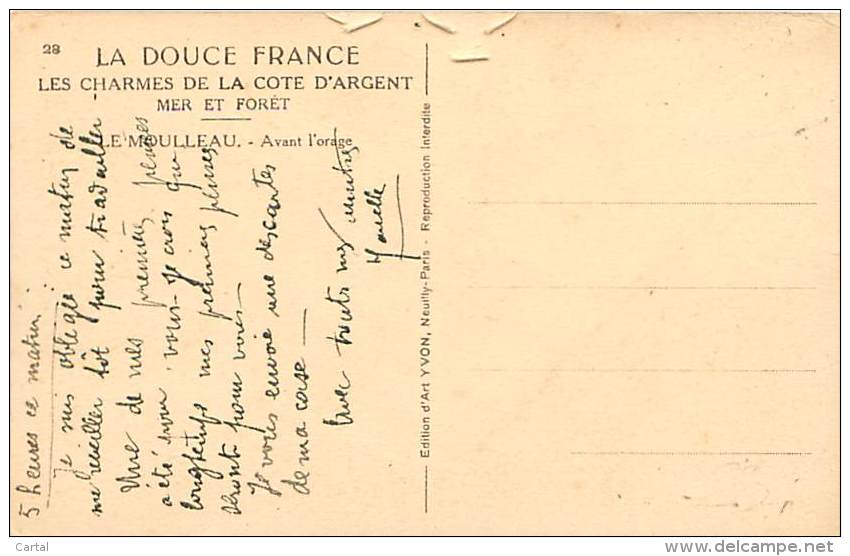 28
LA DOUCE FRANCE
LES CHARMES DE LA COTE D'ARGENT
MER ET FORÊT
LE MOULLEAU. - Avant l'orage
5 heures ce matin
Je suis obligée ce matin de
me réveiller tôt pour travailler -
Une de mes premières pensées
a été pour vous - Je crois que
longtemps mes premières pensées
seront pour vous -
Je vous envoie une des cartes
de ma case —
Avec toutes mes
Edition d'Art YVON, Neuilly-Paris - Reproduction interdite
Cartal
www.delcampe.net